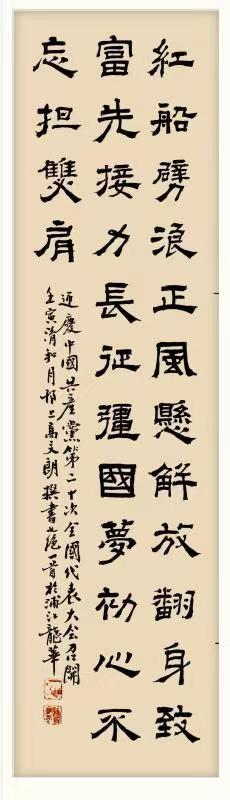 紅船劈浪正風懸解放翻身致
富先接力長征彊國夢初心不
忘担雙肩
迎慶中國共産黨第二十次全國代表大会召開
壬寅清和月邗上高文朗撰書七絶一首於浦江龍華